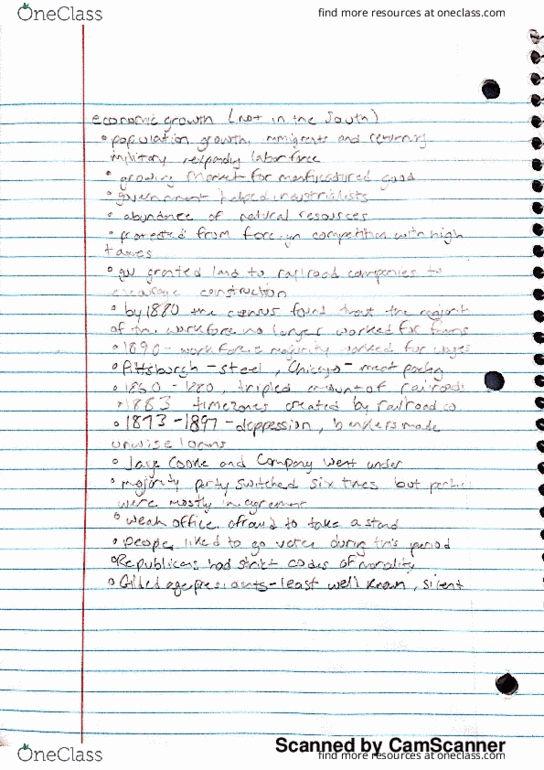 OneClass
find more resources at oneclass.com
economic growth (not in the South)
• population growth, immigrants and returning
military expanding labor force
• growing market for manfucatured good
• government helped industrialists
• abundance of natural resources
• protested from foreign competition with high
taxes
• gov granted land to railroad companies to
construction
• by 1880 the census found that the majority
of the workforce no longer worked for farms
• 1890 - workforce majority worked for wages
• Pittsburgh - steel, Chicago - meat packing
• 1860 - 1880, tripled amount of railroads
• 1883 timezones created by railroad co.
• 1873 - 1897 - depression, bankers made
unwise loans
• Jaye Cooke and Company went under
• majority party switched six times but parties
were mostly in agreement
• weak office, afraid to take a stand
• people liked to go voter during this period
• Republicans had strict codes of morality
• Gilded age presidents - least well known, silent
Scanned by CamScanner
OneClass
find more resources at oneclass.com